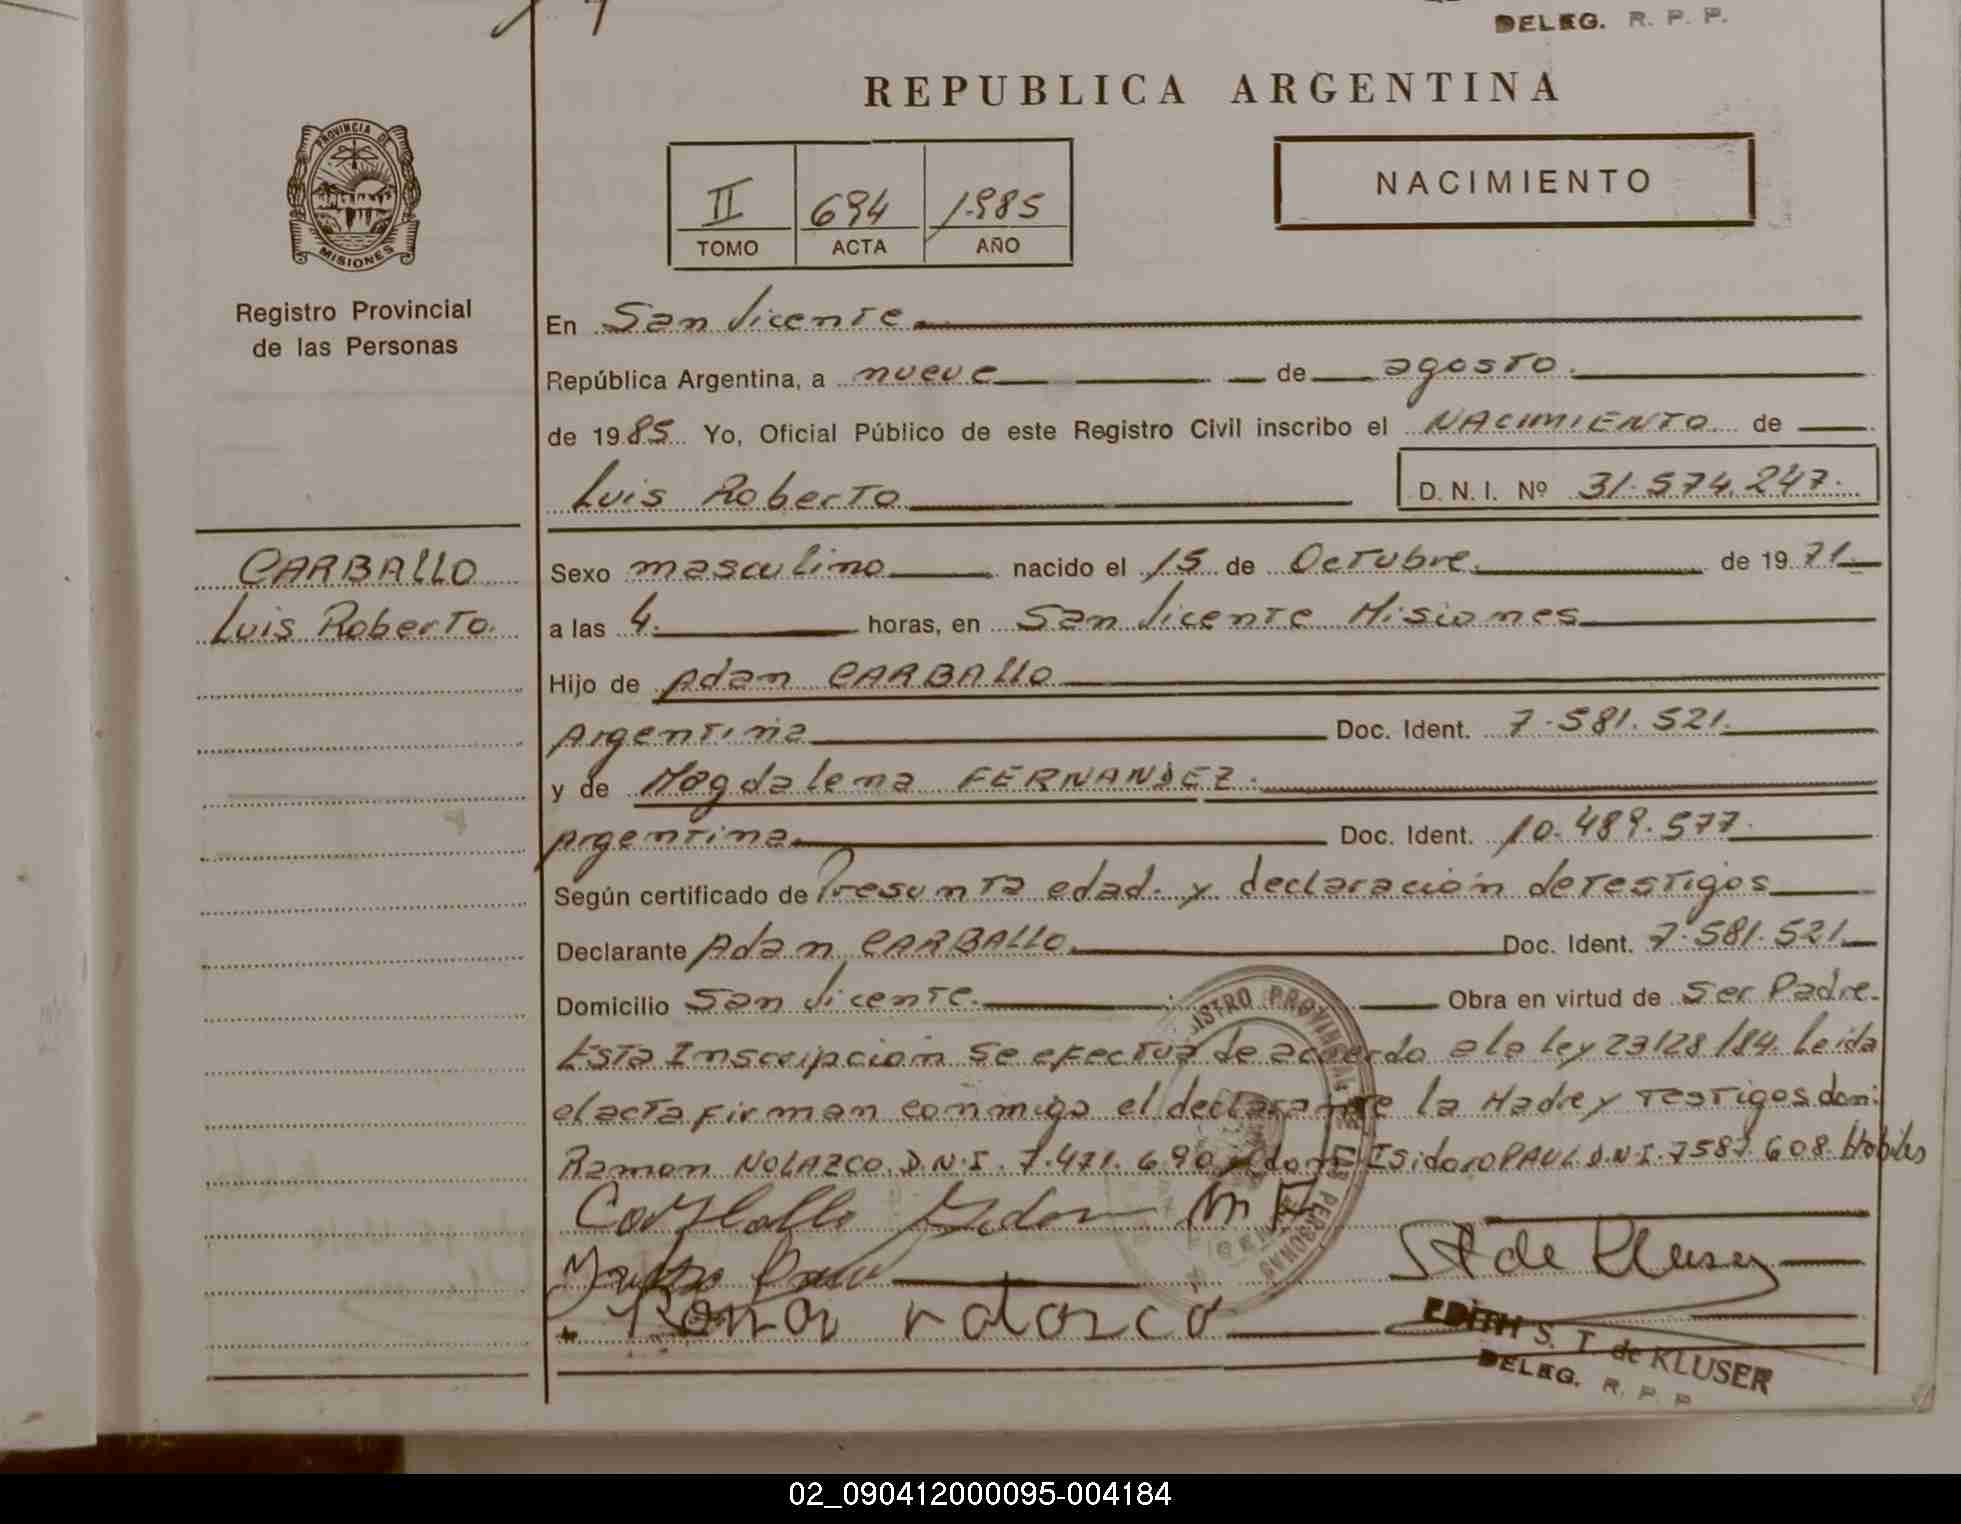 DELEG. R. P. P.
REPUBLICA ARGENTINA
PROVINCIA DE
MISIONES
Registro Provincial
de las Personas
II 694 1985
TOMO ACTA AÑO
NACIMIENTO
En San Vicente
República Argentina, a nueve de agosto.
de 1985 Yo, Oficial Público de este Registro Civil inscribo el NACIMIENTO de
Luis Roberto D. N. I. Nº 31.574.247.
CARBALLO
Luis Roberto.
Sexo masculino nacido el 15 de Octubre. de 1971
a las 4. horas, en San Vicente Misiones
Hijo de Adan CARBALLO
Argentina Doc. Ident. 7.581.521.
y de Magdalena FERNANDEZ.
Argentina Doc. Ident. 10.489.577.
Según certificado de Presunta edad. y declaración de testigos
Declarante Adan CARBALLO Doc. Ident. 7.581.521
Domicilio San Vicente. Obra en virtud de Ser Padre.
Esta Inscripción se efectua de acuerdo a la ley 23128/84. Leida
el acta firman conmigo el declarante la Madre y Testigos don:
Ramon NOLAZCO. D.N.I. 7.471.690 y don Isidoro PAUL D.N.I. 7587.608. Hábiles
Carballo Adan M F
St de Kluser
Ramon nolazco
EDITH S. T. de KLUSER
DELEG. R. P. P.
REGISTRO PROVINCIAL DE LAS PERSONAS
02_090412000095-004184